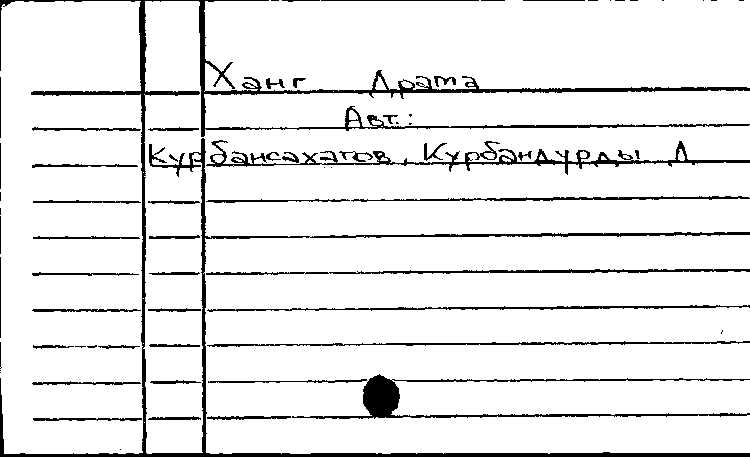 Ханг Драма
Авт.:
Курбансахатов, Курбандурды Д